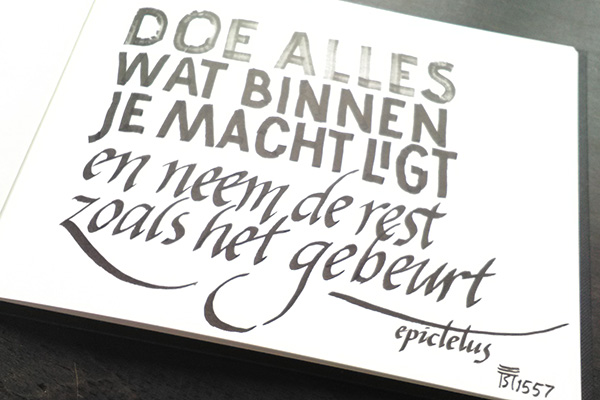 DOE ALLES
WAT BINNEN
JE MACHT LIGT
en neem de rest
zoals het gebeurt
epictetus
1557